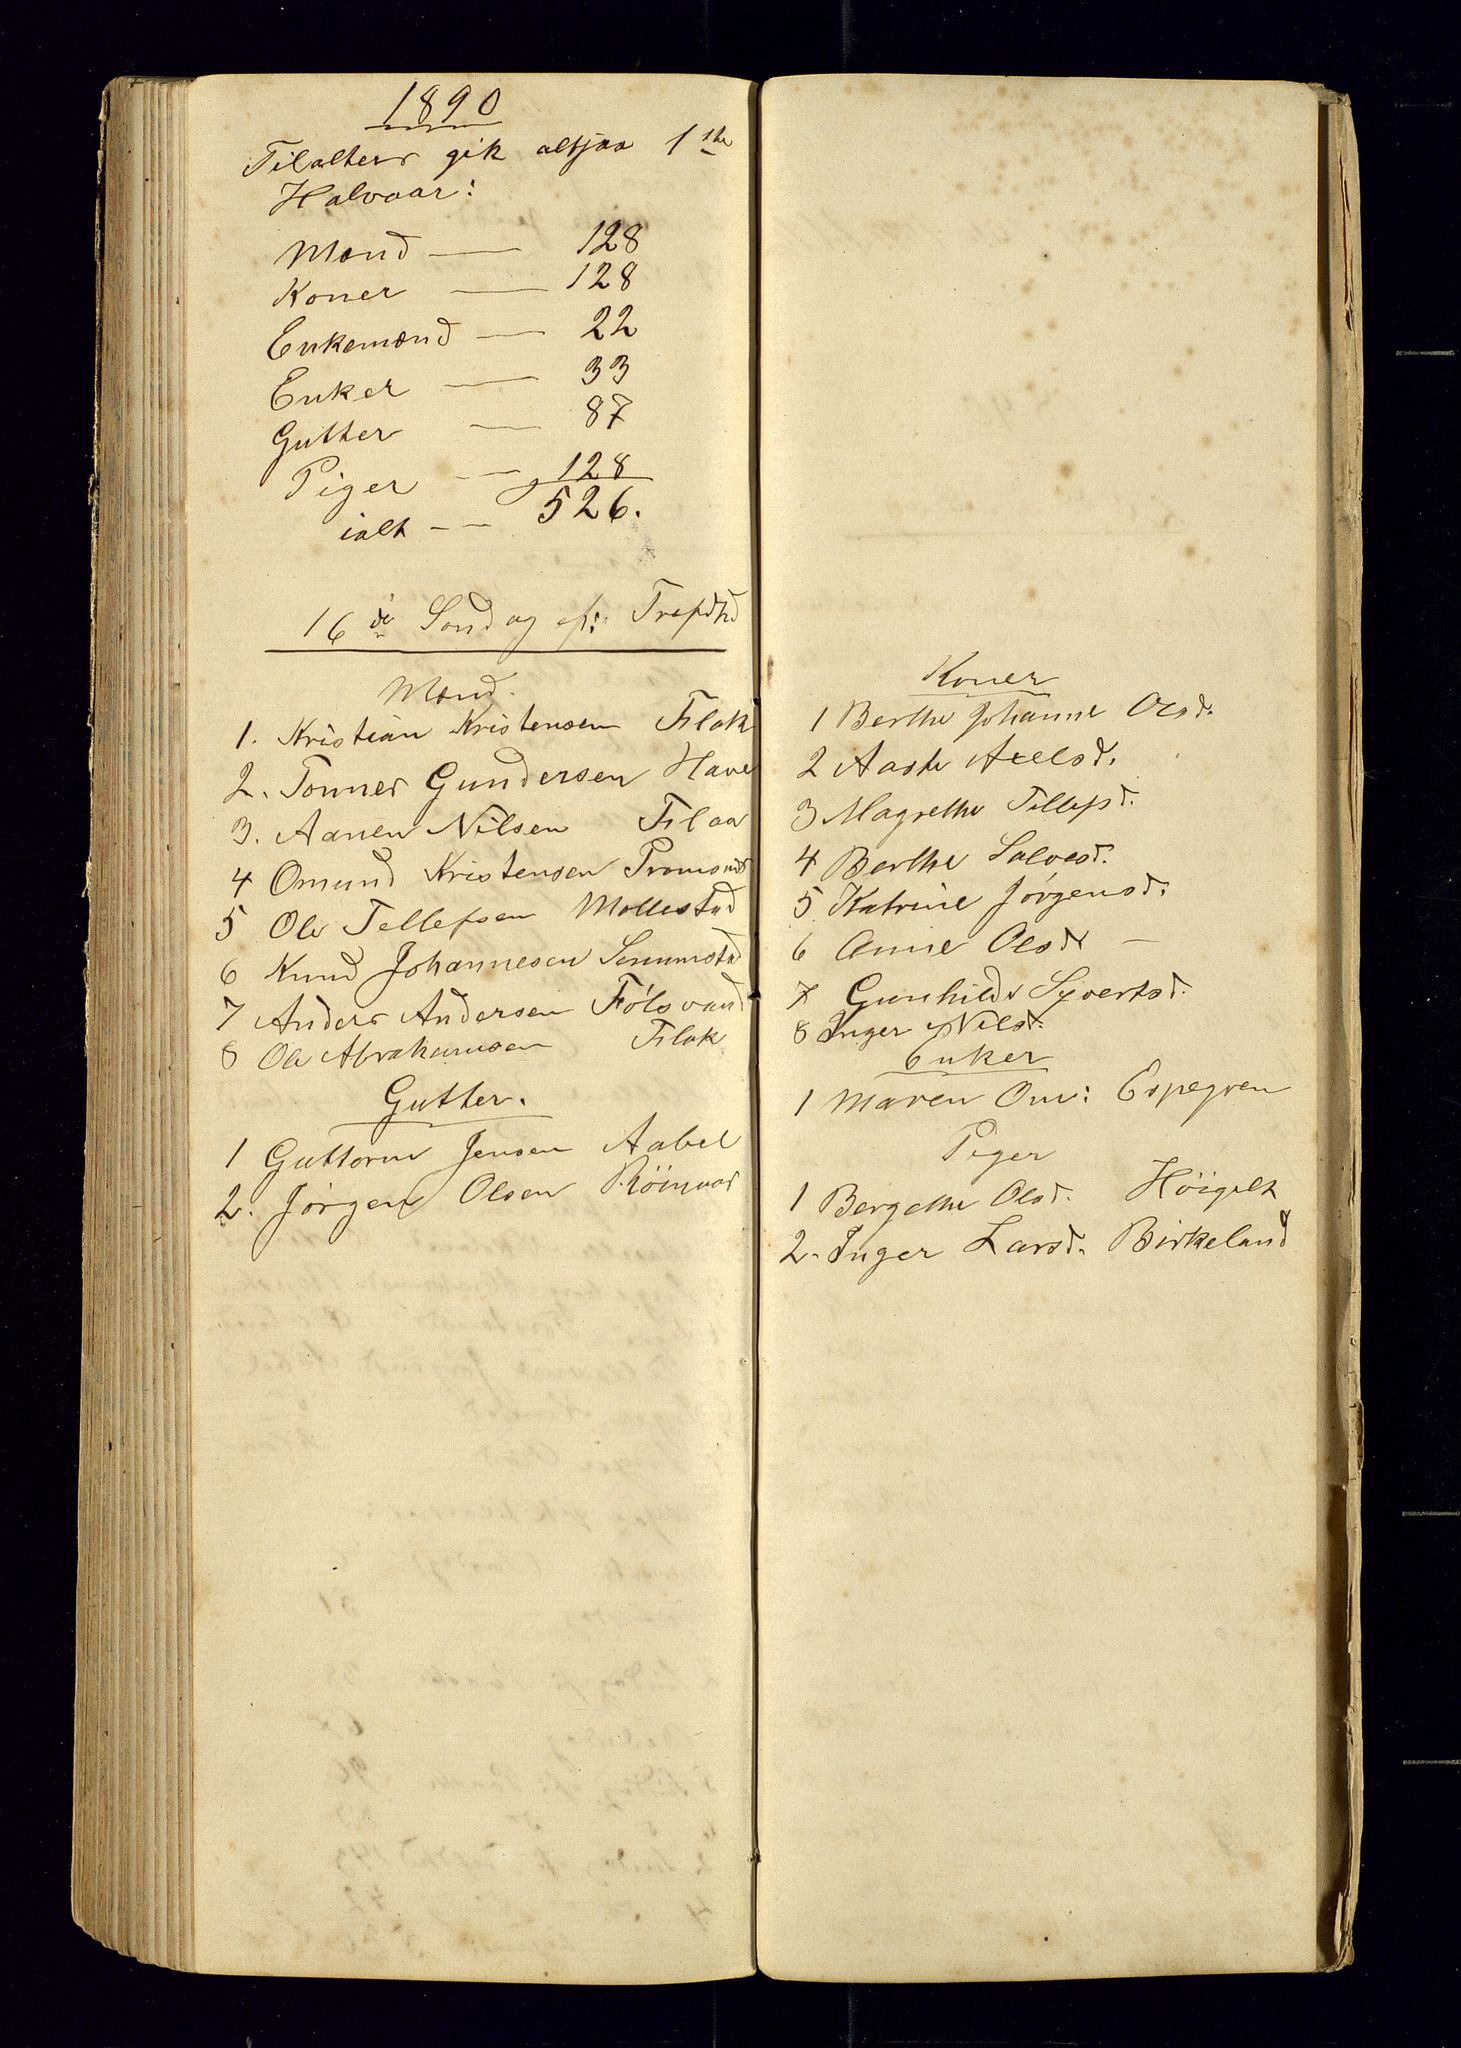 1890
Tilalters gik altsaa 1ste
Halvaar:
Mænd — 128
Koner — 128
Enkemænd — 22
Enker — 33
Gutter — 87
Piger — 128
ialt — 526.
16de Søndag ef: Trefdhd
Mænd.
1. Kristian Kristensen Flak
2. Tønnes Gundersen Have
3. Aanen Nilsen Flaa
4 Omund Kristensen
5 Ole Tellefsen Mollestad
6 Knud Johannesen Senumstad
7 Anders Andersen Fólsvand
8 Ole Abrahamsen Flak
Gutter.
1 Guttorm Jensen Aabel
2. Jórgen Olsen
Koner
1 Berthe Johanne Olsd.
2 Aaste Axelsd.
3 Magrethe Tellefsd.
4 Berthe Salvesd.
5 Katrine Jórgensd.
6 Anne Olsd —
7 Gunhilde Syvertsd.
8 Inger Nilsd.
Enker
1 Maren Om: Espegren
Piger
1 Bergethe Olsd. Höigilt
2. Inger Larsd. Birkeland